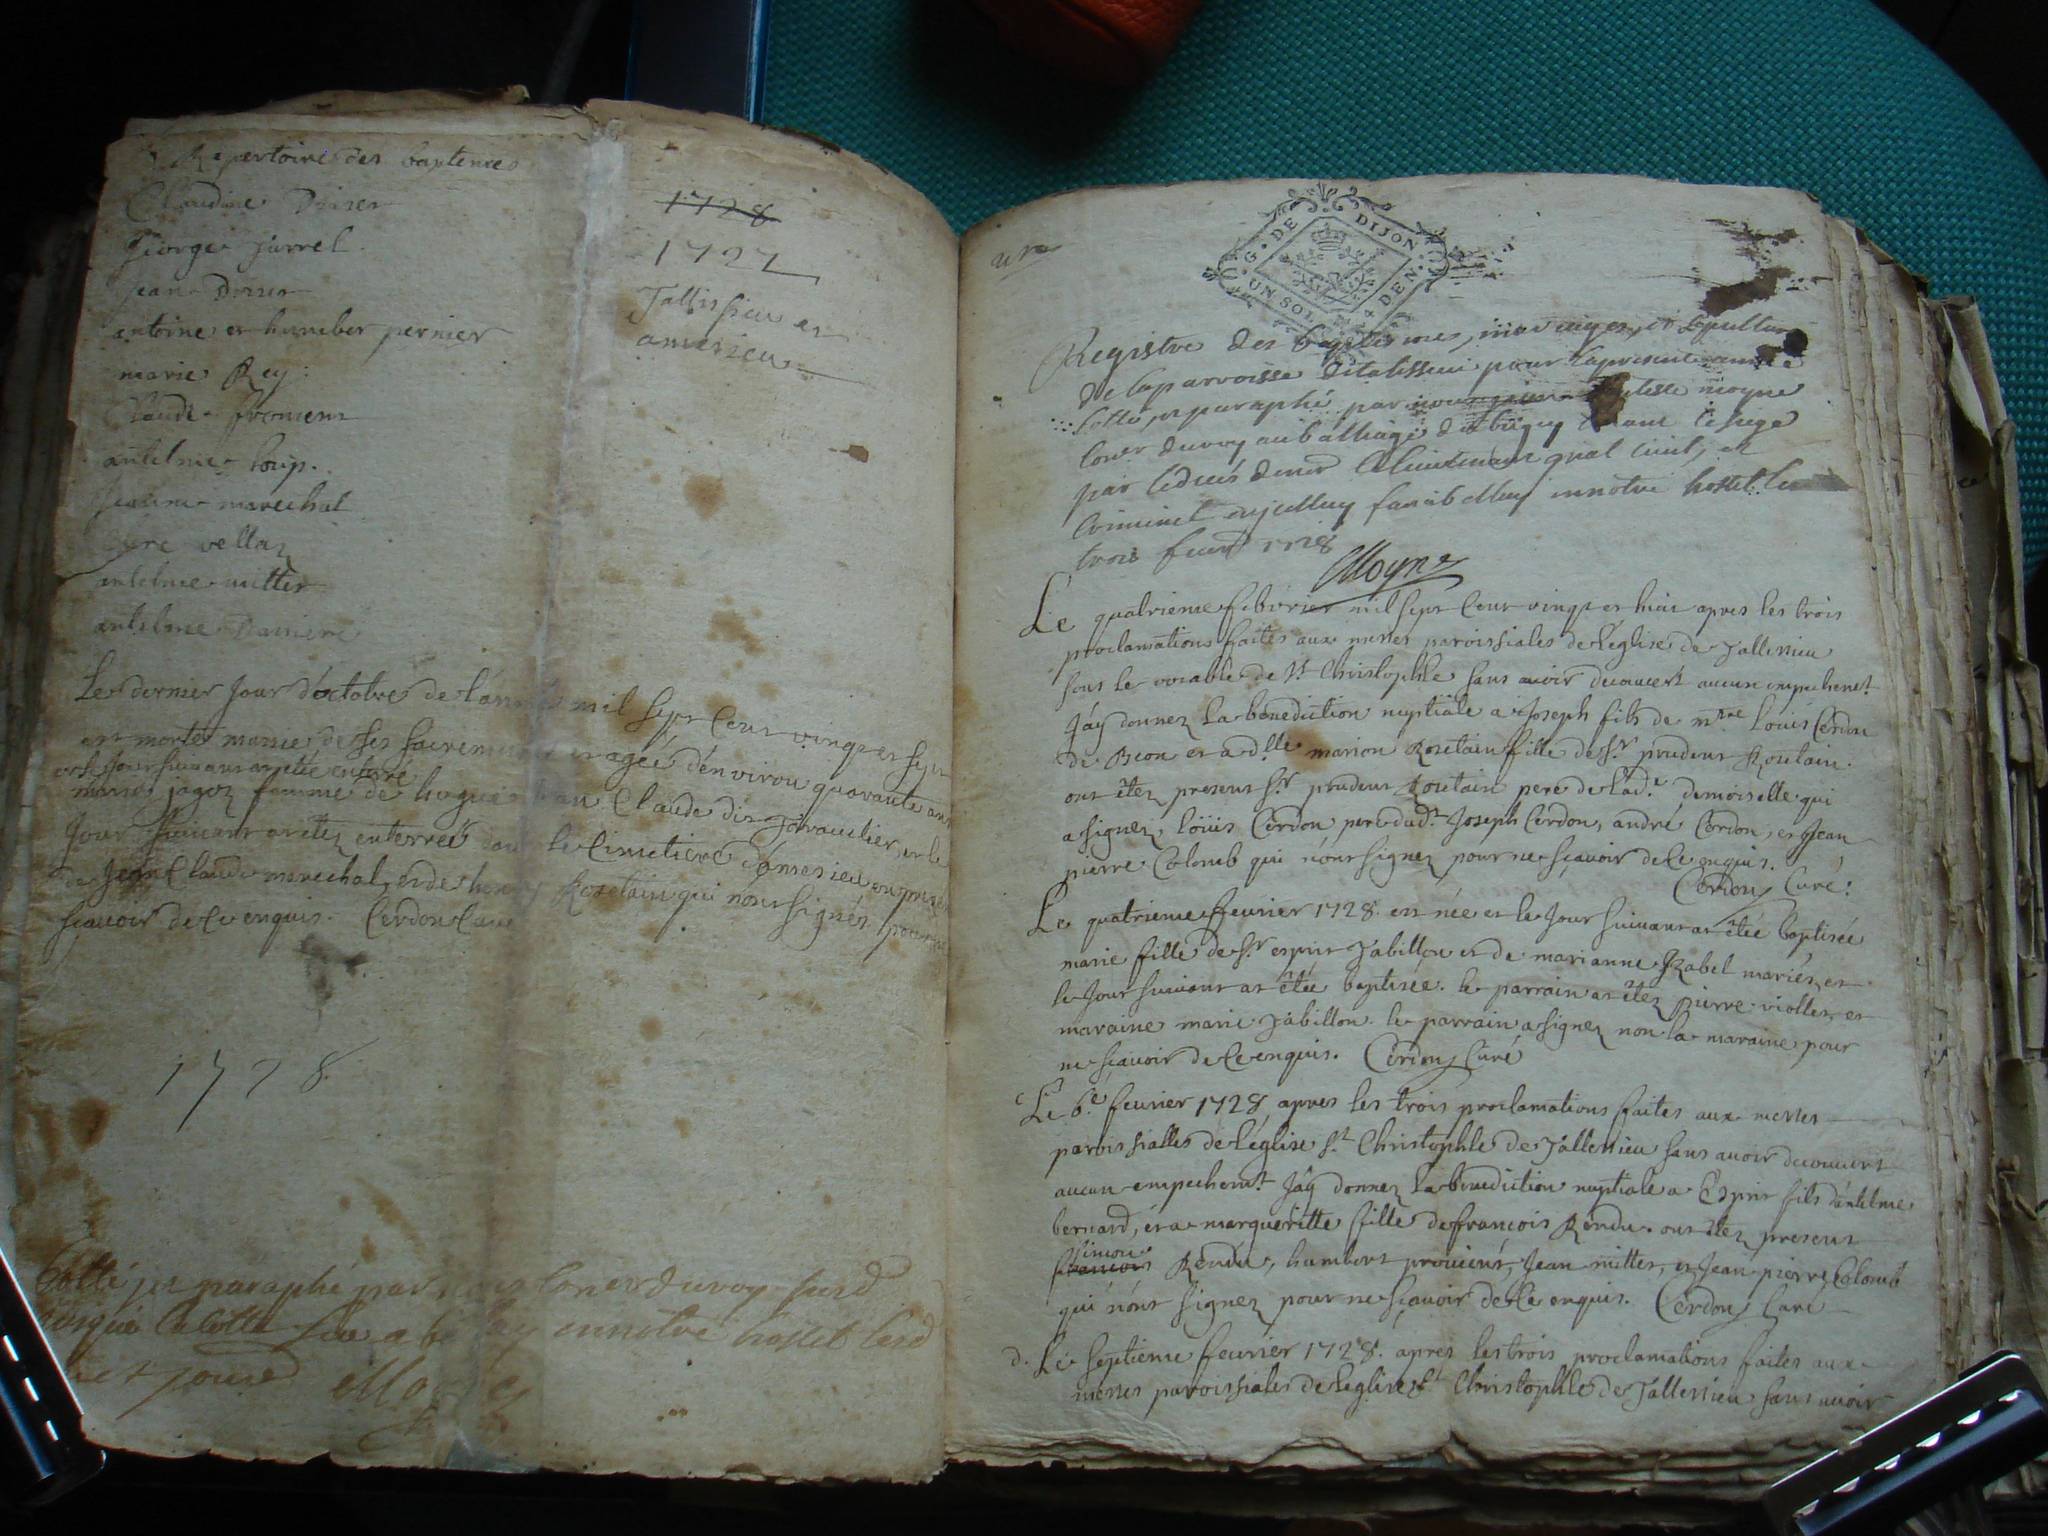 Repertoire des baptemes
Claudine Driser
George Jurrel
Jean
antoine et humber pernier
marie Rey
Claude froment
antelme loup.
Jeanne marechal
vellaz
antelme mitter
antelme
1728
1727
Tallissieu et
amesieu
Le dernier Jour d'octobre de mil sept Cent vingt et sept
est morte munie de ses sacremens et agée d'environ quarante ans
et le Jour suivant at etée enterré
marie jagoz femme de Claude et le
Jour suivant at etez enterrée dans le Cimetiere d'amesieu en presence
de Jean Claude marechal, et de henry Rosetain qui n'ont signéz pour ne
sçavoir de Ce enquis. Cerdon Curé
1728
Cotté et paraphé par nous Coner du roy susd
notre hostel lesd
et jours Moyne
G. DE DIJON
UN SOL 4 DEN.
Registre des baptesmes, mariages, et sepultures
de la parroisse de talissieu pour la presente année
Cotté, et paraphé par moyne
Coner du roy au balliage de bugey tenant le siege
par le deces de mr le lieutenant gnal Civil, et
Criminel en notre hostel le
trois feuvr 1728
Moyne
Le quatrieme febvrier mil sept Cent vingt et huit apres les trois
proclamations faites aux messes paroissiales de l'église de Tallessieu
sous le vocable de St Christophle sans avoir decouvert aucun empechemt
J'ay donnez la benediction nuptiale a Joseph fils de mtre loüis Cerdon
de Beon et a dlle marion Rosetain fille de Sr prudent Rosetain.
ont êtez present Sr prudent Rosetain pere de lade demoiselle qui
a signez, loüis Cerdon pere dudt Joseph Cerdon, andré Cerdon, et Jean
pierre Colomb qui n'ont signez pour ne sçavoir de Ce enquis.
Cerdon Curé.
Le quatrieme fevrier 1728. est née et le Jour suivant at êtée baptisée
marie fille de Sr esprit Jabillon et de marianne Izabel mariéz, et
le Jour suivant at êtée baptisée. le parrain at êtez pierre viollet, et
maraine marie Jabillon. le parrain a signez non la maraine pour
ne sçavoir de Ce enquis. Cerdon Curé
c Le 6e fevrier 1728, apres les trois proclamations faites aux messes
paroissialles de l'église St Christophle de Tallessieu sans avoir decouvert
aucun empechemt J'ay donnez la benediction nuptiale a Esprit fils d'antelme
bernard, et a margueritte fille de francois Rendu. ont êtez present
simon
francois Rendu, humbert, Jean mitter, et Jean pierre Colomb
qui n'ont signez pour ne sçavoir de Ce enquis. Cerdon Curé
d. Le septieme fevrier 1728. apres les trois proclamations faites aux
messes paroissiales de l'eglise St Christophle de Tallessieu sans avoir